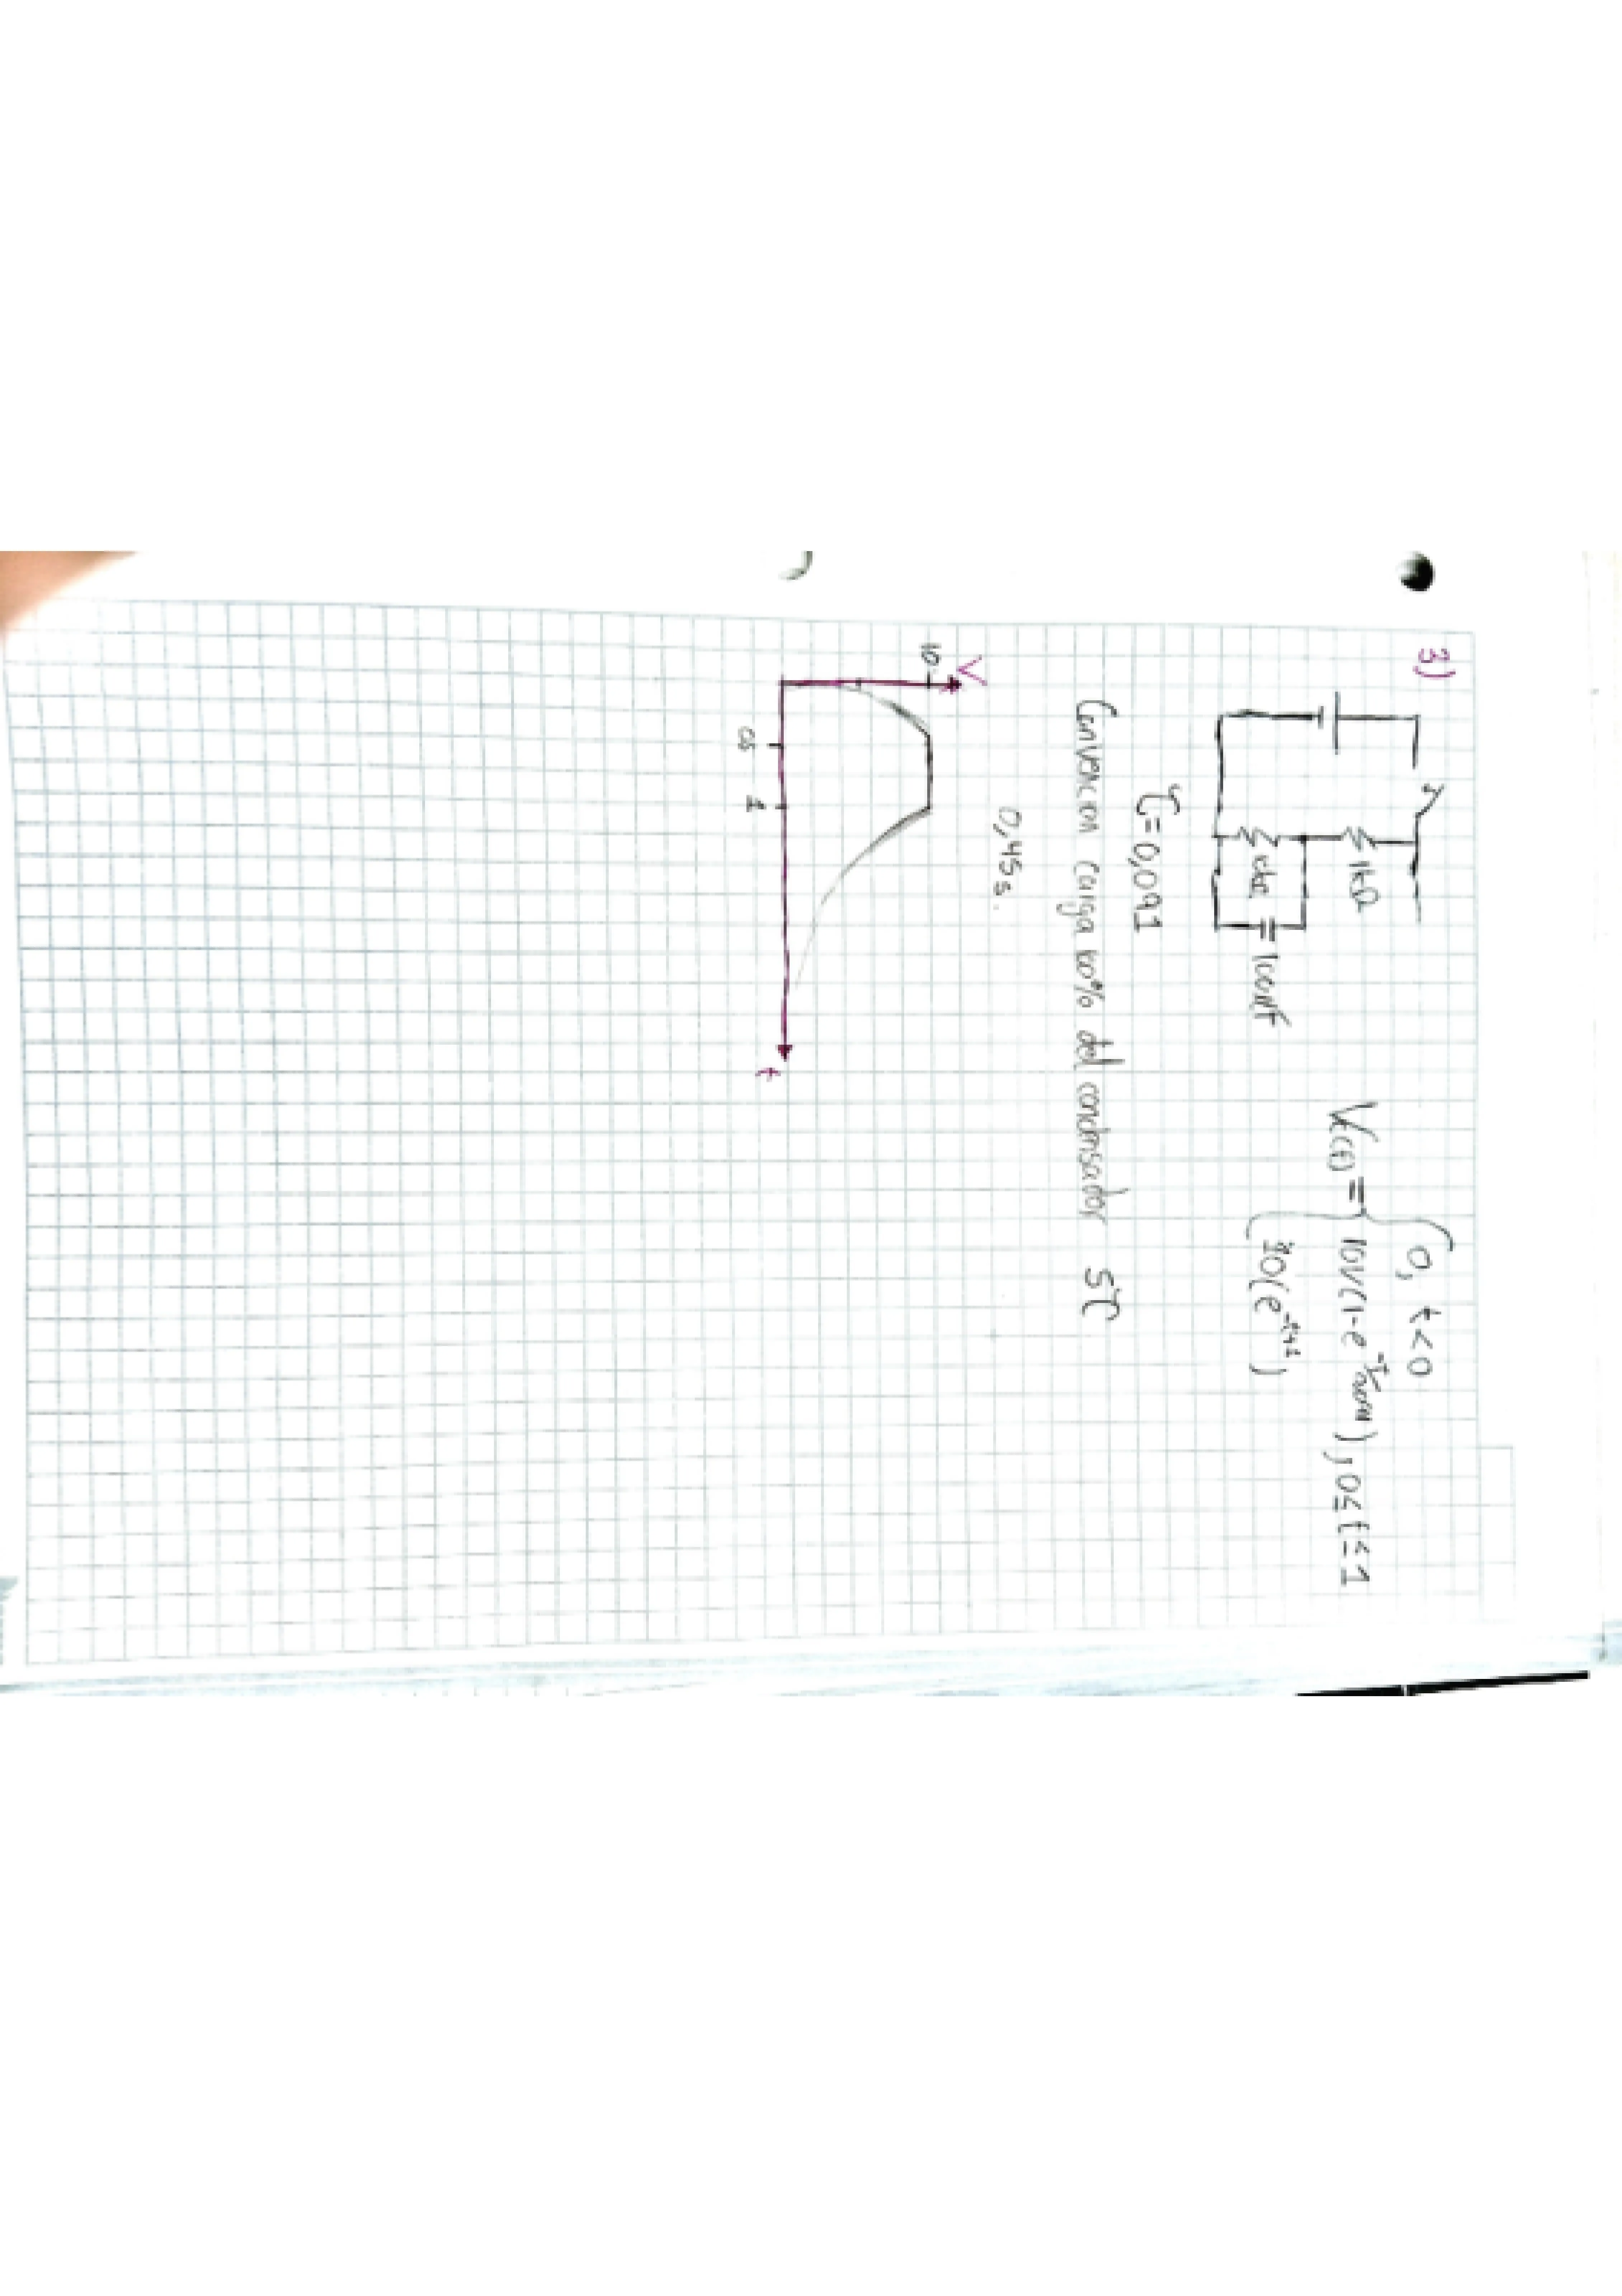 3)
1kΩ
100µf
Vc(t) =
0, t<0
10V(1-e ), 0≤t≤1
10(e )
τ=0,091
Convención carga 100% del condensador 5τ
0,45s.
V
10
1
t